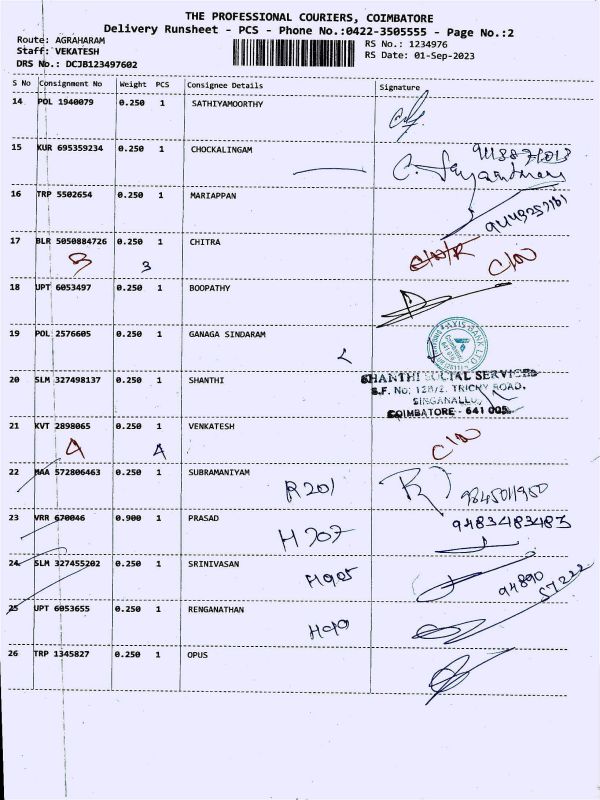 THE PROFESSIONAL COURIERS, COIMBATORE
Delivery Runsheet - PCS - Phone No.:0422-3505555 - Page No.:2
Route: AGRAHARAM
Staff: VEKATESH
DRS No.: DCJB123497602
RS No.: 1234976
RS Date: 01-Sep-2023
S No Consignment No Weight PCS Consignee Details Signature
14 POL 1940079 0.250 1 SATHIYAMOORTHY
15 KUR 695359234 0.250 1 CHOCKALINGAM
16 TRP 5502654 0.250 1 MARIAPPAN
17 BLR 5050884726 0.250 1 CHITRA
3 3 C/N
18 UPT 6053497 0.250 1 BOOPATHY
19 POL 2576605 0.250 1 GANAGA SINDARAM
AXIS BANK LTD
20 SLM 327498137 0.250 1 SHANTHI
SHANTHI SOCIAL SERVICES
S.F. No: 128/2, TRICHY ROAD,
SINGANALLU
COIMBATORE - 641 005
21 KVT 2898065 0.250 1 VENKATESH
4 4 C/N
22 MAA 572806463 0.250 1 SUBRAMANIYAM
R201 9845011950
23 VRR 670046 0.900 1 PRASAD
H 707 9483483483
24 SLM 327455202 0.250 1 SRINIVASAN
H905 94890 57222
25 UPT 6053655 0.250 1 RENGANATHAN
26 TRP 1345827 0.250 1 OPUS